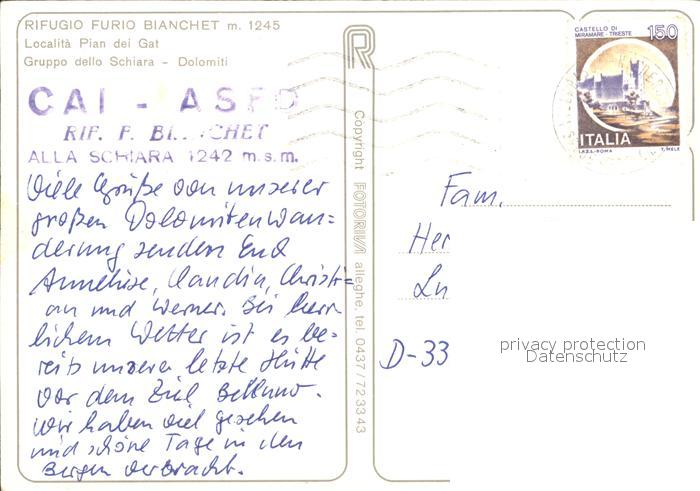 RIFUGIO FURIO BIANCHET m. 1245
Località Pian dei Gat
Gruppo dello Schiara - Dolomiti
CAI - ASFO
RIF. F. BI CHET
ALLA SCHIARA 1242 m.s.m.
Viele Grüße von unserer
großen Dolomitenwan=
derung senden Euch
Anneliese, Claudia, Christi=
an und Werner. Bei herr
lichem Wetter ist es be=
reits unsere letzte Hütte
vor dem Ziel Belluno.
Wir haben viel gesehen
und schöne Tage in den
Bergen verbracht.
Copyright FOTORIVA alleghe, tel. 0437/723343
CASTELLO DI
MIRAMARE - TRIESTE
150
ITALIA
I.P.Z.S.-ROMA T. MELE
Fam.
Her
Lu
D-33
privacy protection
Datenschutz